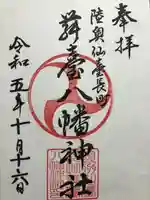 奉拝
陸奥仙台長町
舞臺八幡神社
令和五年十月十六日